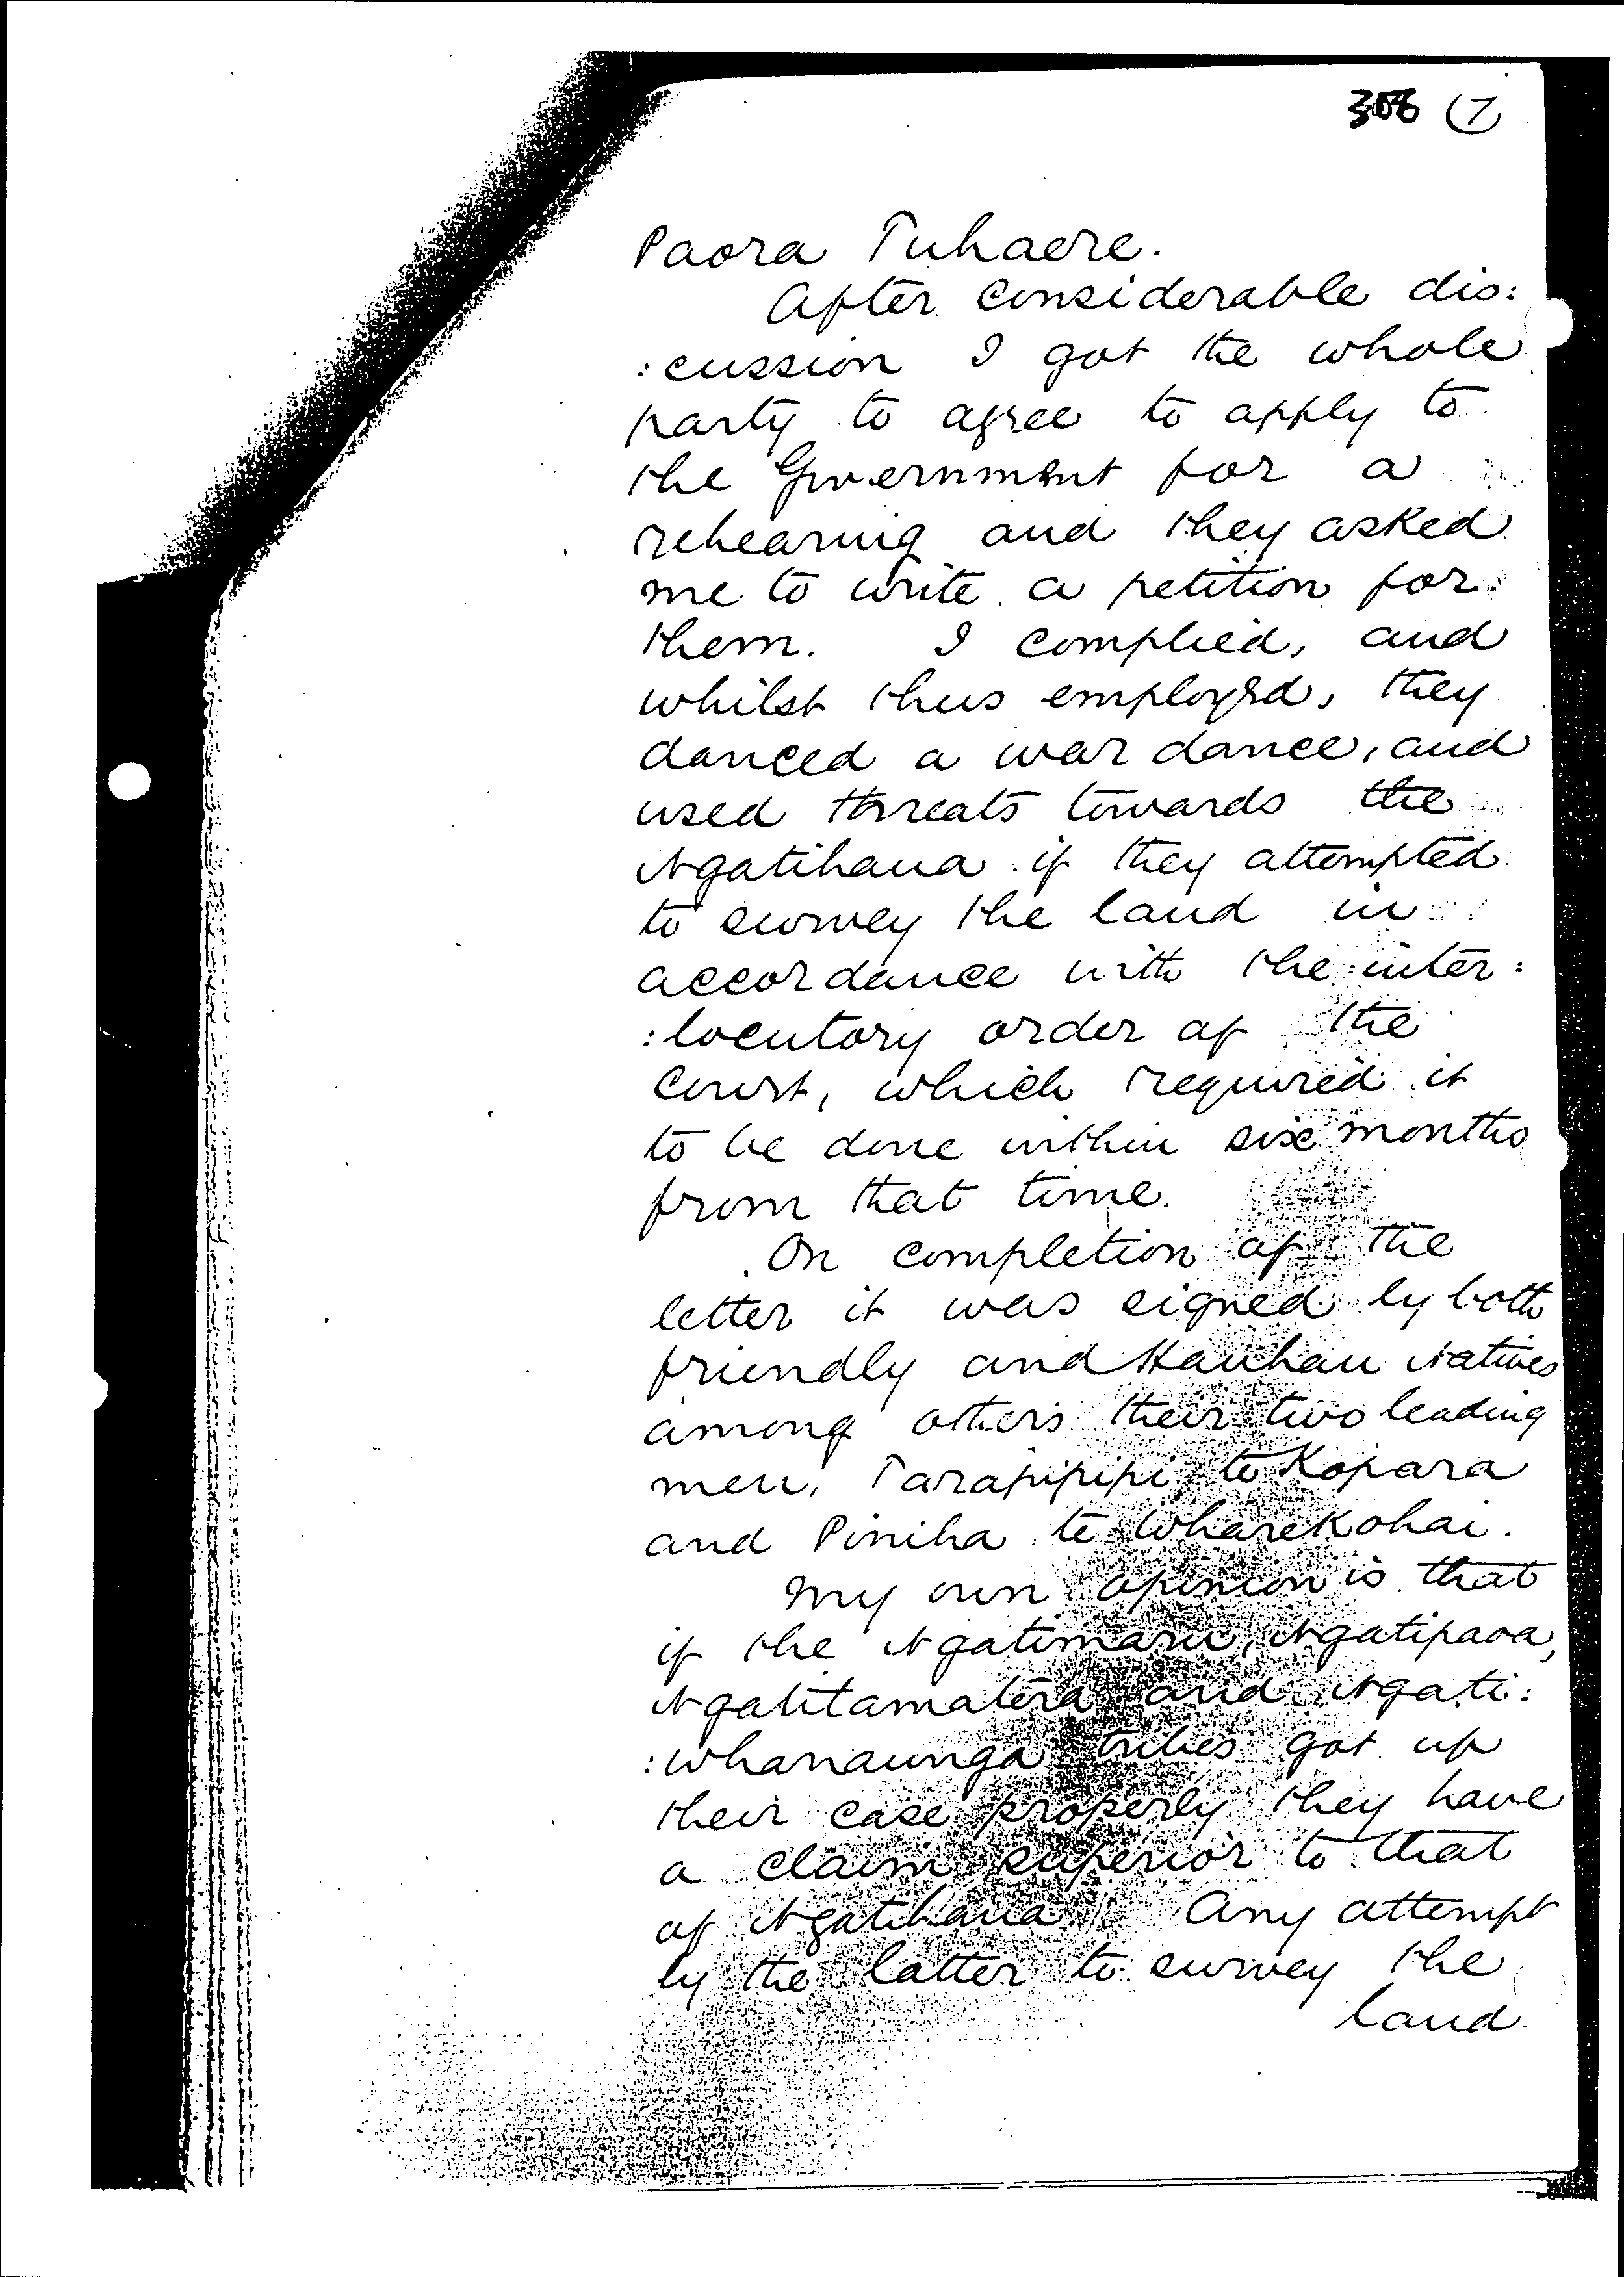 308 (7)
Paora Tuhaere.
After considerable dis:
:cussion I got the whole
party to agree to apply to
the Government for a
rehearing and they asked
me to write a petition for
them. I complied, and
whilst thus employed, they
danced a war dance, and
used threats towards the
Ngatihaua if they attempted
to survey the land in
accordance with the inter:
:locutory order of the
Court, which required it
to be done within six months
from that time.
On completion of the
letter it was signed by both
friendly and Hauhau Natives
among others their two leading
men, Tarapipipi te Kopara
and Piniha te Wharekohai.
My own opinion is that
if the Ngatimaru, Ngatipaoa,
Ngatitamatera and Ngati:
:whanaunga tribes got up
their case properly they have
a claim superior to that
of Ngatihaua. Any attempt
by the latter to survey the
land